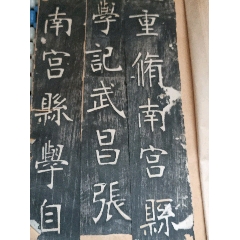 重脩南宮縣
學記武昌張
南宮縣學自